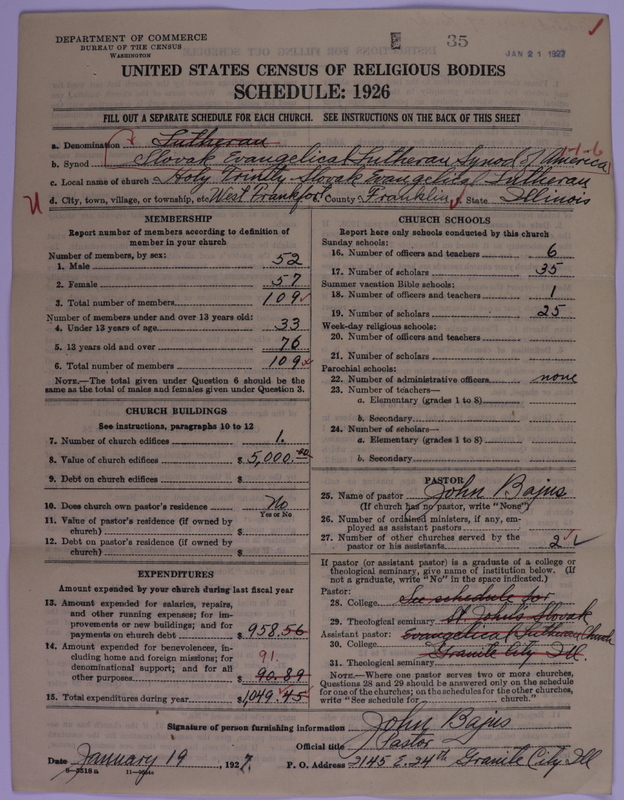 DEPARTMENT OF COMMERCE
BUREAU OF THE CENSUS
WASHINGTON
35
JAN 21 1927
UNITED STATES CENSUS OF RELIGIOUS BODIES
SCHEDULE: 1926
FILL OUT A SEPARATE SCHEDULE FOR EACH CHURCH. SEE INSTRUCTIONS ON THE BACK OF THIS SHEET
a. Denomination Lutheran
b. Synod Slovak Evangelical Lutheran Synod of America
c. Local name of church Holy Trinity Slovak Evangelical Lutheran
d. City, town, village, or township, etc. West Frankfort County Franklin State Illinois
MEMBERSHIP
Report number of members according to definition of
member in your church
Number of members, by sex:
1. Male 52
2. Female 57
3. Total number of members 109
Number of members under and over 13 years old:
4. Under 13 years of age 33
5. 13 years old and over 76
6. Total number of members 109
NOTE.—The total given under Question 6 should be the
same as the total of males and females given under Question 3.
CHURCH BUILDINGS
See instructions, paragraphs 10 to 12
7. Number of church edifices 1.
8. Value of church edifices $ 5,000.00
9. Debt on church edifices $
10. Does church own pastor's residence No
Yes or No
11. Value of pastor's residence (if owned by
church) $
12. Debt on pastor's residence (if owned by
church) $
EXPENDITURES
Amount expended by your church during last fiscal year
13. Amount expended for salaries, repairs,
and other running expenses; for im-
provements or new buildings; and for
payments on church debt $ 958.56
14. Amount expended for benevolences, in-
cluding home and foreign missions; for
denominational support; and for all 91.
other purposes $ 90.89
15. Total expenditures during year $ 1,049.45
CHURCH SCHOOLS
Report here only schools conducted by this church
Sunday schools:
16. Number of officers and teachers 6
17. Number of scholars 35
Summer vacation Bible schools:
18. Number of officers and teachers 1
19. Number of scholars 25
Week-day religious schools:
20. Number of officers and teachers
21. Number of scholars
Parochial schools:
22. Number of administrative officers none
23. Number of teachers—
a. Elementary (grades 1 to 8)
b. Secondary
24. Number of scholars—
a. Elementary (grades 1 to 8)
b. Secondary
PASTOR
25. Name of pastor John Bajus
(If church has no pastor, write "None")
26. Number of ordained ministers, if any, em-
ployed as assistant pastors
27. Number of other churches served by the
pastor or his assistants 2
If pastor (or assistant pastor) is a graduate of a college or
theological seminary, give name of institution below. (If
not a graduate, write "No" in the space indicated.)
Pastor:
28. College See schedule for
29. Theological seminary St. John's Slovak
Assistant pastor: Evangelical Lutheran Church
30. College Granite City Ill.
31. Theological seminary
NOTE.—Where one pastor serves two or more churches,
Questions 28 and 29 should be answered only on the schedule
for one of the churches; on the schedules for the other churches,
write "See schedule for church."
Signature of person furnishing information John Bajus
Official title Pastor
Date January 19, 1927.
P. O. Address 2145 E. 24th Granite City Ill